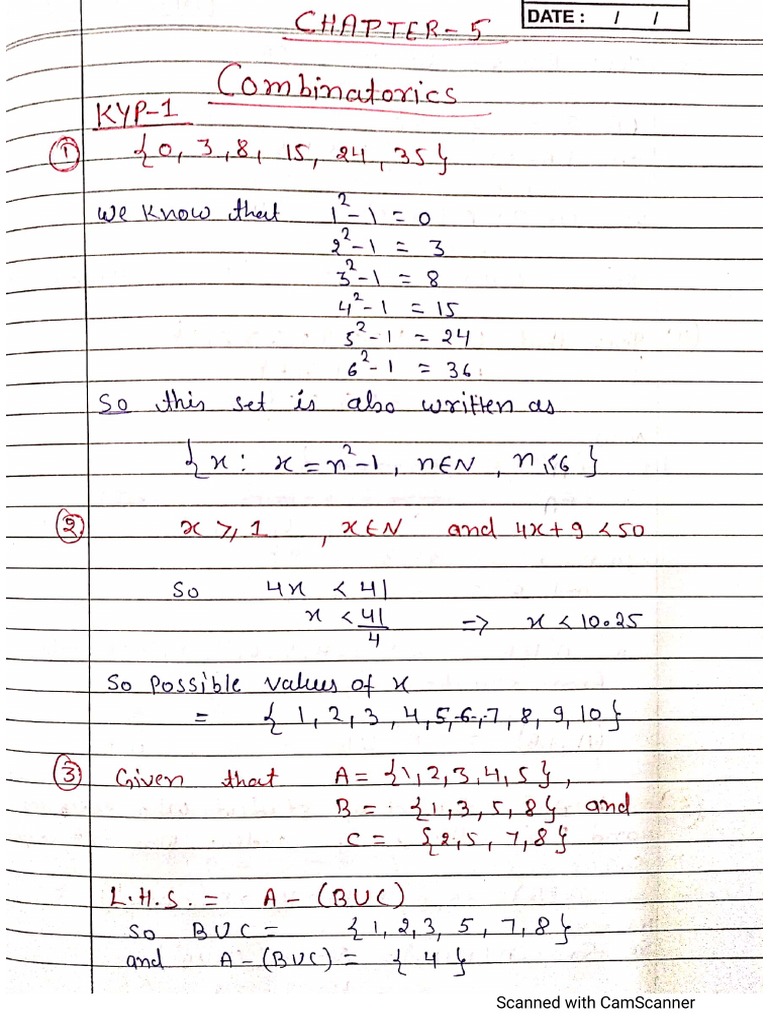 CHAPTER-5
DATE : / /
Combinatorics
KYP-1
① {0, 3, 8, 15, 24, 35}
we know that 1²-1 = 0
2²-1 = 3
3²-1 = 8
4²-1 = 15
5²-1 = 24
6²-1 = 36
So this set is also written as
{x: x = n²-1, n∈N, n≤6}
② x ≥ 1, x∈N and 4x+9 < 50
So 4x < 41
x < 41/4 => x < 10.25
So possible values of x
= {1, 2, 3, 4, 5, 6, 7, 8, 9, 10}
③ Given that A = {1, 2, 3, 4, 5},
B = {1, 3, 5, 8} and
C = {2, 5, 7, 8}
L.H.S. = A - (B∪C)
so B∪C = {1, 2, 3, 5, 7, 8}
and A-(B∪C) = {4}
Scanned with CamScanner